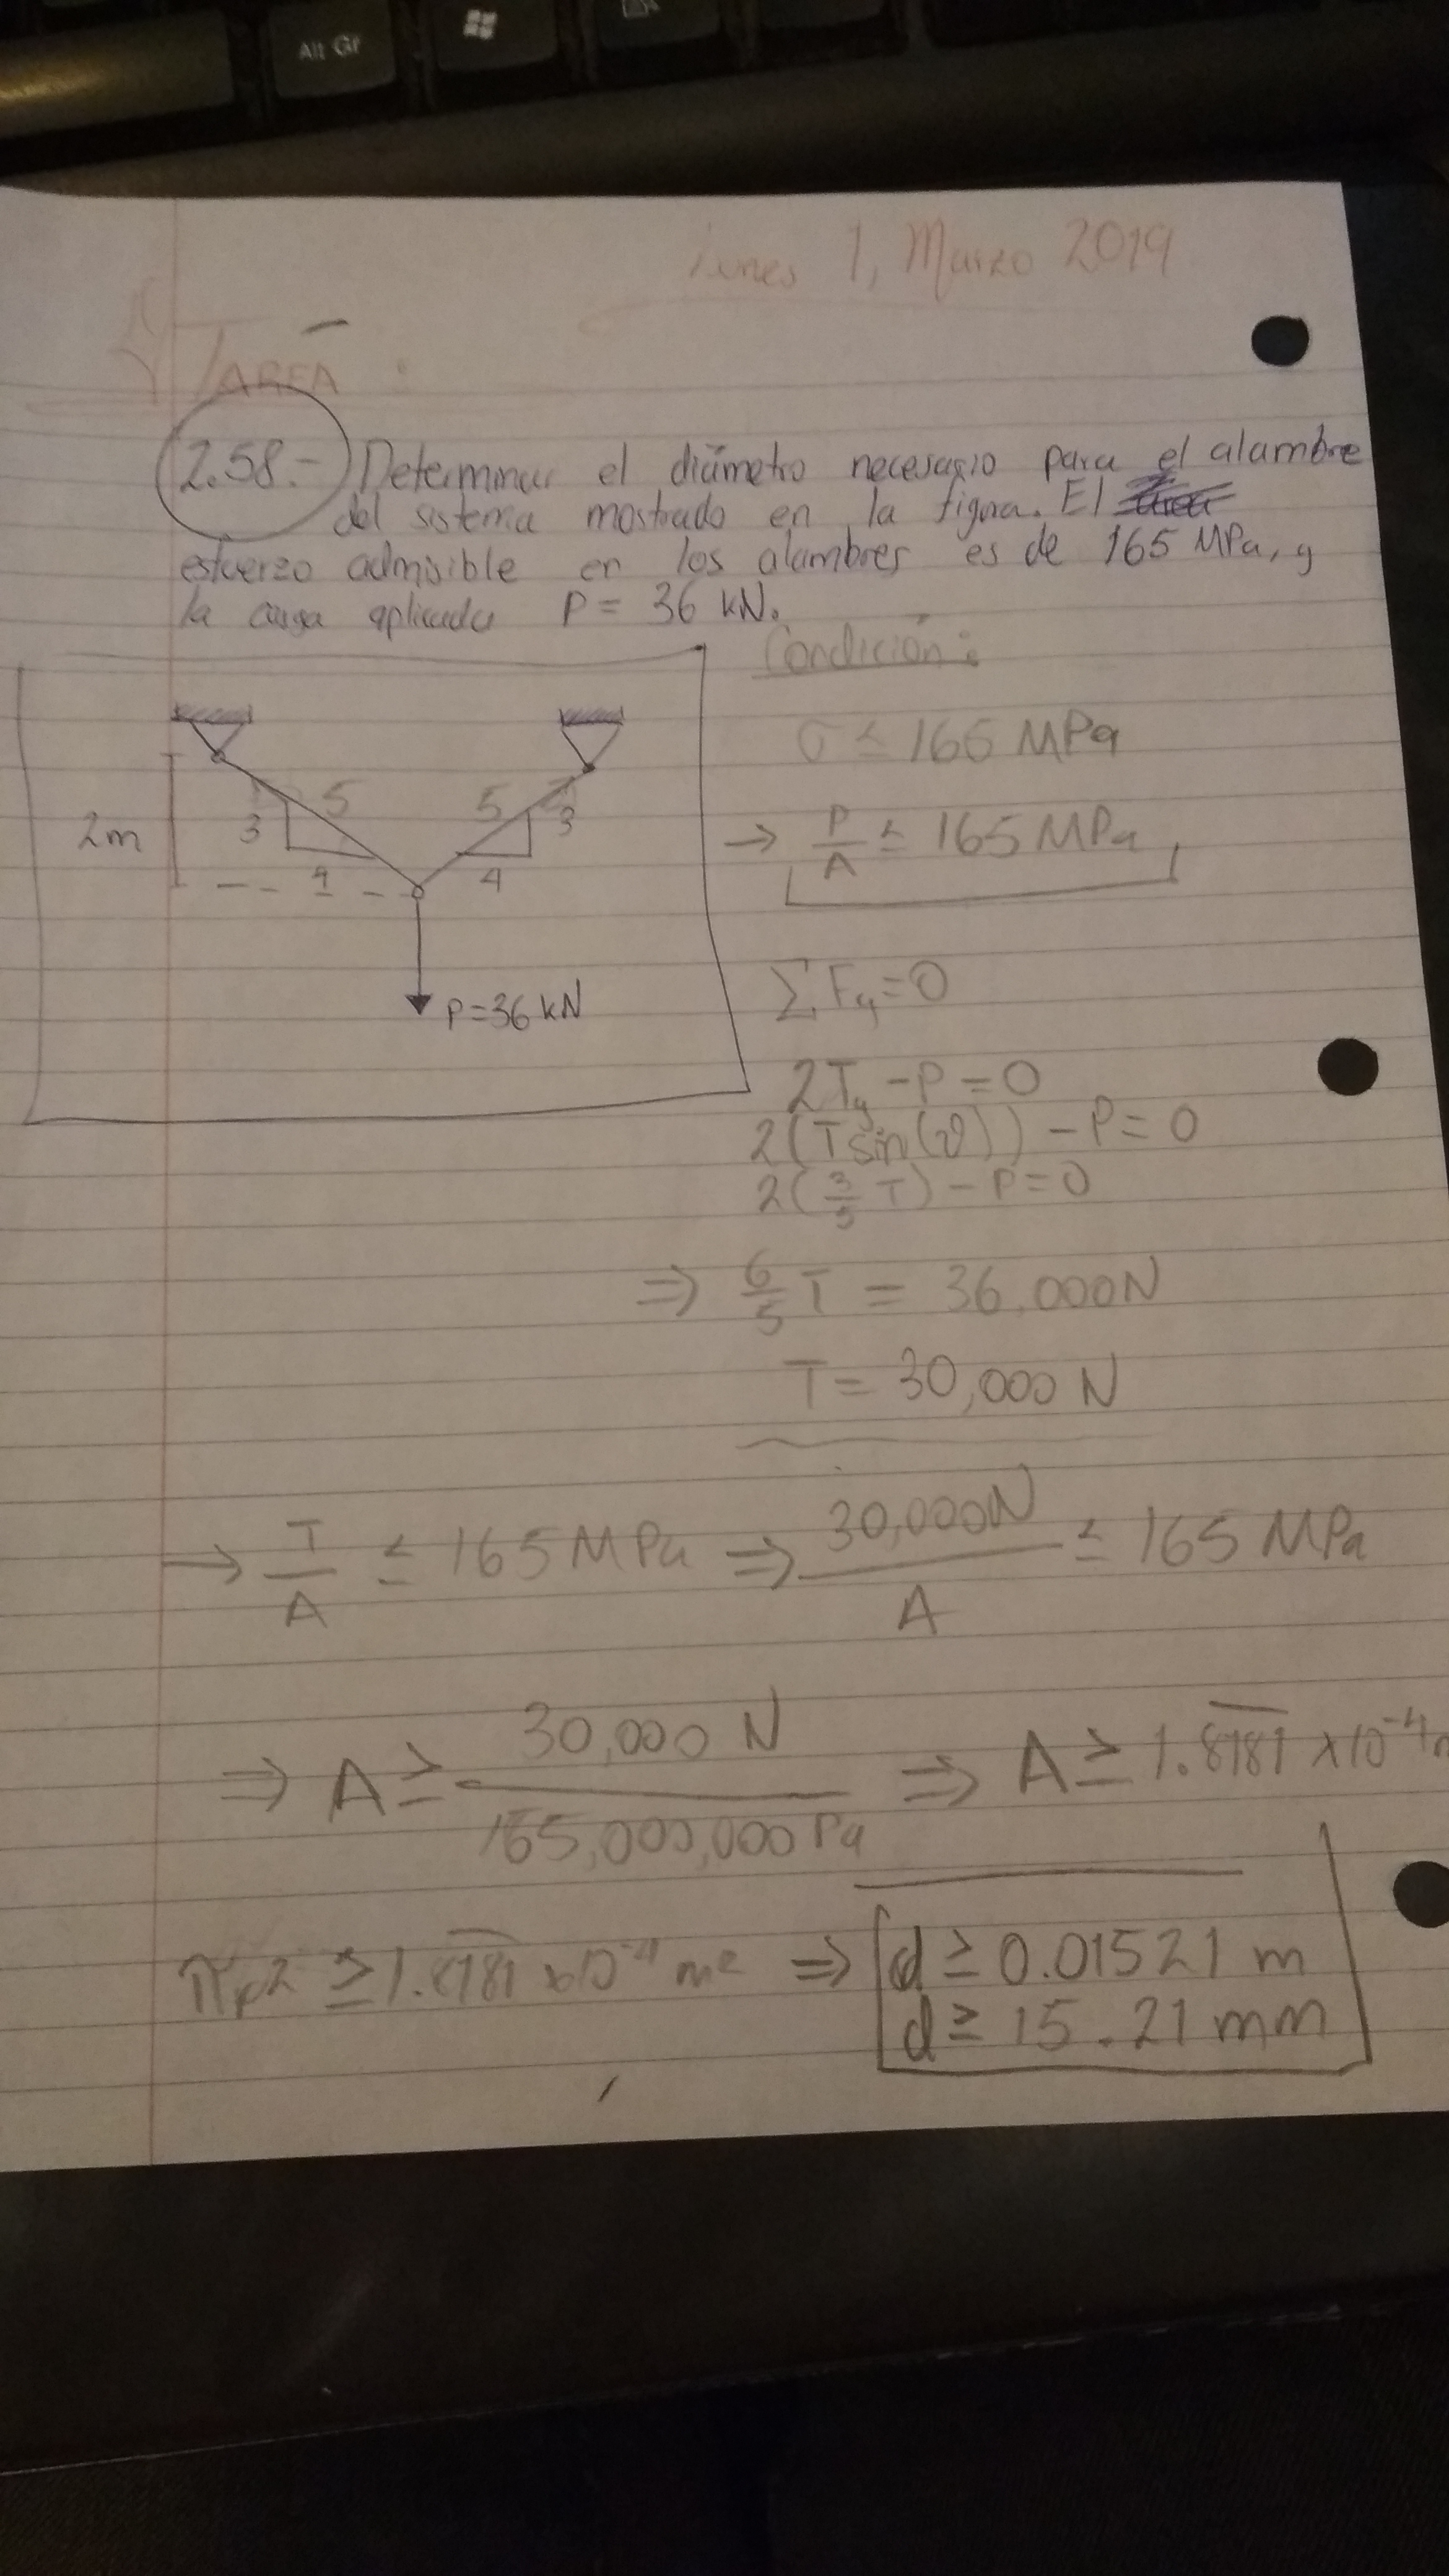 Alt Gr
Lunes 1, Marzo 2019
TAREA:
2.58.- Determinar el diámetro necesario para el alambre
del sistema mostrado en la figura. El
esfuerzo admisible en los alambres es de 165 MPa, y
la carga aplicada P = 36 kN.
Condición:
σ ≤ 165 MPa
→ P/A ≤ 165 MPa
2m
3 5 5 3
4 4
P=36 kN
ΣFy=0
2Ty - P = 0
2(T sin(θ)) - P = 0
2(3/5 T) - P = 0
⇒ 6/5 T = 36,000N
T = 30,000 N
→ T/A ≤ 165 MPa ⇒ 30,000N/A ≤ 165 MPa
⇒ A ≥ 30,000 N/165,000,000 Pa ⇒ A ≥ 1.8181 x10⁻⁴
πr² ≥ 1.8181 x10⁻⁴ m² ⇒ d ≥ 0.01521 m
d ≥ 15.21 mm